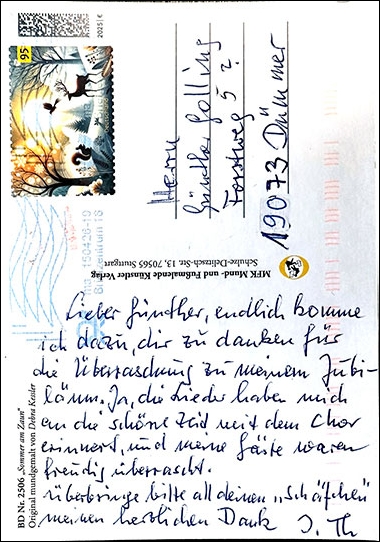 95
Herrn
Günther Golling
Forstweg 5
19073 Dümmer
MFK Mund- und Fußmalende Künstler Verlag
Schulze-Delitzsch-Str. 13, 70565 Stuttgart
Lieber Günther, endlich komme
ich dazu, dir zu danken für
die Überraschung zu meinem Jubi-
läum. Ja, die Lieder haben mich
an die schöne Zeit mit dem Chor
erinnert, und meine Gäste waren
freudig überrascht.
Überbringe bitte all deinen „Schäfchen"
meinen herzlichen Dank J. Th
BD Nr. 2506 „Sommer am Zaun"
Original mundgemalt von Debra Kesler